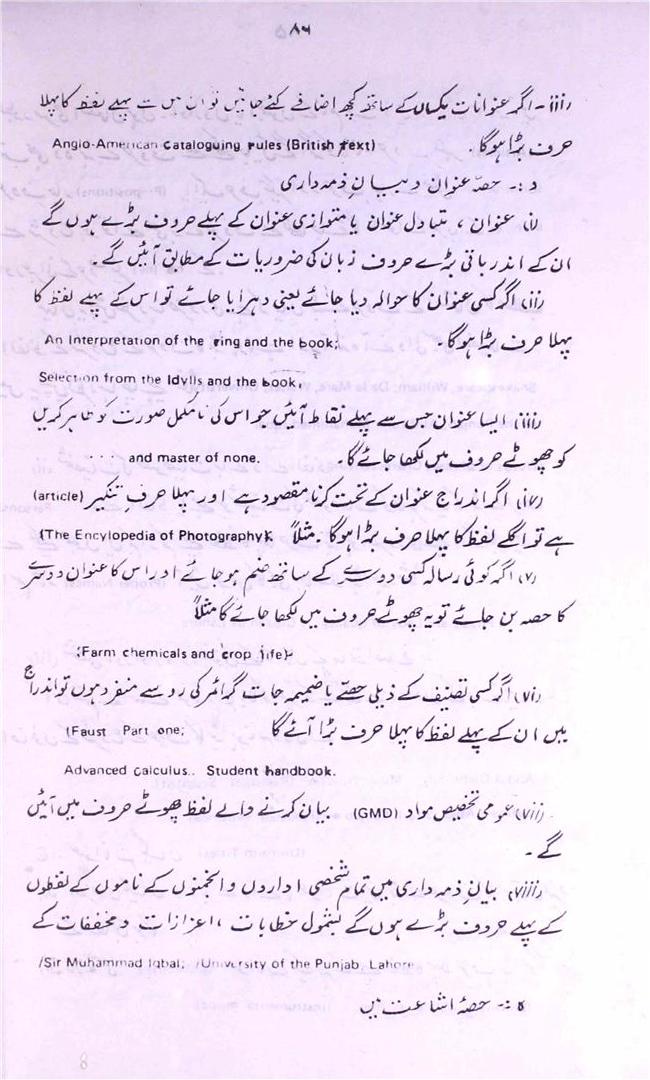 ۸۶
(iii)- اگر عنوانات یکساں کے ساتھ کچھ اضافے کئے جائیں تو ان میں سے پہلے لفظ کا پہلا
حرف بڑا ہوگا۔ Anglo-American cataloguing rules (British text)
د :- حصہ عنوان و بیان ذمہ داری
(i) عنوان ، متبادل عنوان یا متوازی عنوان کے پہلے حروف بڑے ہوں گے
ان کے اندر باقی بڑے حروف زبان کی ضروریات کے مطابق آئیں گے۔
(ii) اگر کسی عنوان کا حوالہ دیا جائے یعنی دہرایا جائے تو اس کے پہلے لفظ کا
پہلا حرف بڑا ہوگا۔ An Interpretation of the ring and the book;
Selection from the Idylls and the book,
(iii) ایسا عنوان جس سے پہلے نقاط آئیں جو اس کی نامکمل صورت کو ظاہر کریں
کو چھوٹے حروف میں لکھا جائے گا۔ . . . and master of none.
(iv) اگر اندراج عنوان کے تحت کرنا مقصود ہے اور پہلا حرف تنکیر (article)
ہے تو اگلے لفظ کا پہلا حرف بڑا ہوگا۔ مثلاً (The Encylopedia of Photography).
(v) اگر کوئی رسالہ کسی دوسرے کے ساتھ ضم ہو جائے اور اس کا عنوان دوسرے
کا حصہ بن جائے تو یہ چھوٹے حروف میں لکھا جائے گا مثلاً
(Farm chemicals and crop life)
(vi) اگر کسی تصنیف کے ذیلی حصے یا ضمیمہ جات گرائمر کی رو سے منفرد ہوں تو اندراج
میں ان کے پہلے لفظ کا پہلا حرف بڑا آئے گا (Faust Part one;
Advanced calculus.. Student handbook.
(vii) عمومی تخصیص مواد (GMD) بیان کرنے والے لفظ چھوٹے حروف میں آئیں
گے۔
(viii) بیان ذمہ داری میں تمام شخصی اداروں و انجمنوں کے ناموں کے لفظوں
کے پہلے حروف بڑے ہوں گے بشمول خطابات ، اعزازات و مخففات کے
/Sir Muhammad Iqbal; /University of the Punjab, Lahore
ہ :- حصۂ اشاعت میں
8